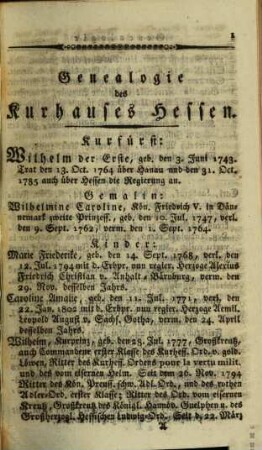 1
Genealogie
des
Kurhauses Hessen.
Kurfürst:
Wilhelm der Erste, geb. den 3. Juni 1743.
Trat den 13. Oct. 1764 über Hanau und den 31. Oct.
1785 auch über Hessen die Regierung an.
Gemalin:
Wilhelmine Caroline, Kön. Friedrich V. in Dän-
nemark zweite Prinzess. geb. den 10. Jul. 1747, verl.
den 9. Sept. 1762, verm. den 1. Sept. 1764.
Kinder:
Marie Friederike, geb. den 14. Sept. 1768, verl. den
12. Jul. 1794 mit d. Erbpr. nun regier. Herzoge Alexius
Friedrich Christian v. Anhalt, Bärnburg, verm. den
29. Nov. desselben Jahrs.
Caroline Amalie, geb. den 11. Jul. 1771, verl. den
22. Jan. 1802 mit d. Erbpr. nun regier. Herzoge Aemil.
Leopold August v. Sachs. Gotha, verm. den 24. April
desselben Jahrs.
Wilhelm, Kurprinz, geb. den 28. Jul. 1777, Großkreuz,
auch Commandeur erster Klasse des Kurhess. Ord. v. gold.
Löwen, Ritter des Kurhess. Ordens pour la vertu milit.
und des vom eisernen Helm. Seit dem 20. Nov. 1794
Ritter des Kön. Preuß. schw. Adl. Ord., und des rothen
Adler-Ord. erster Klasse; Ritter des Ord. vom eisernen
Kreutz, Großkreuz des Königl. Hannöv. Guelphen u. des
Großherzogl. Hessischen Ludwig-Ord. Seit d. 22. März
A